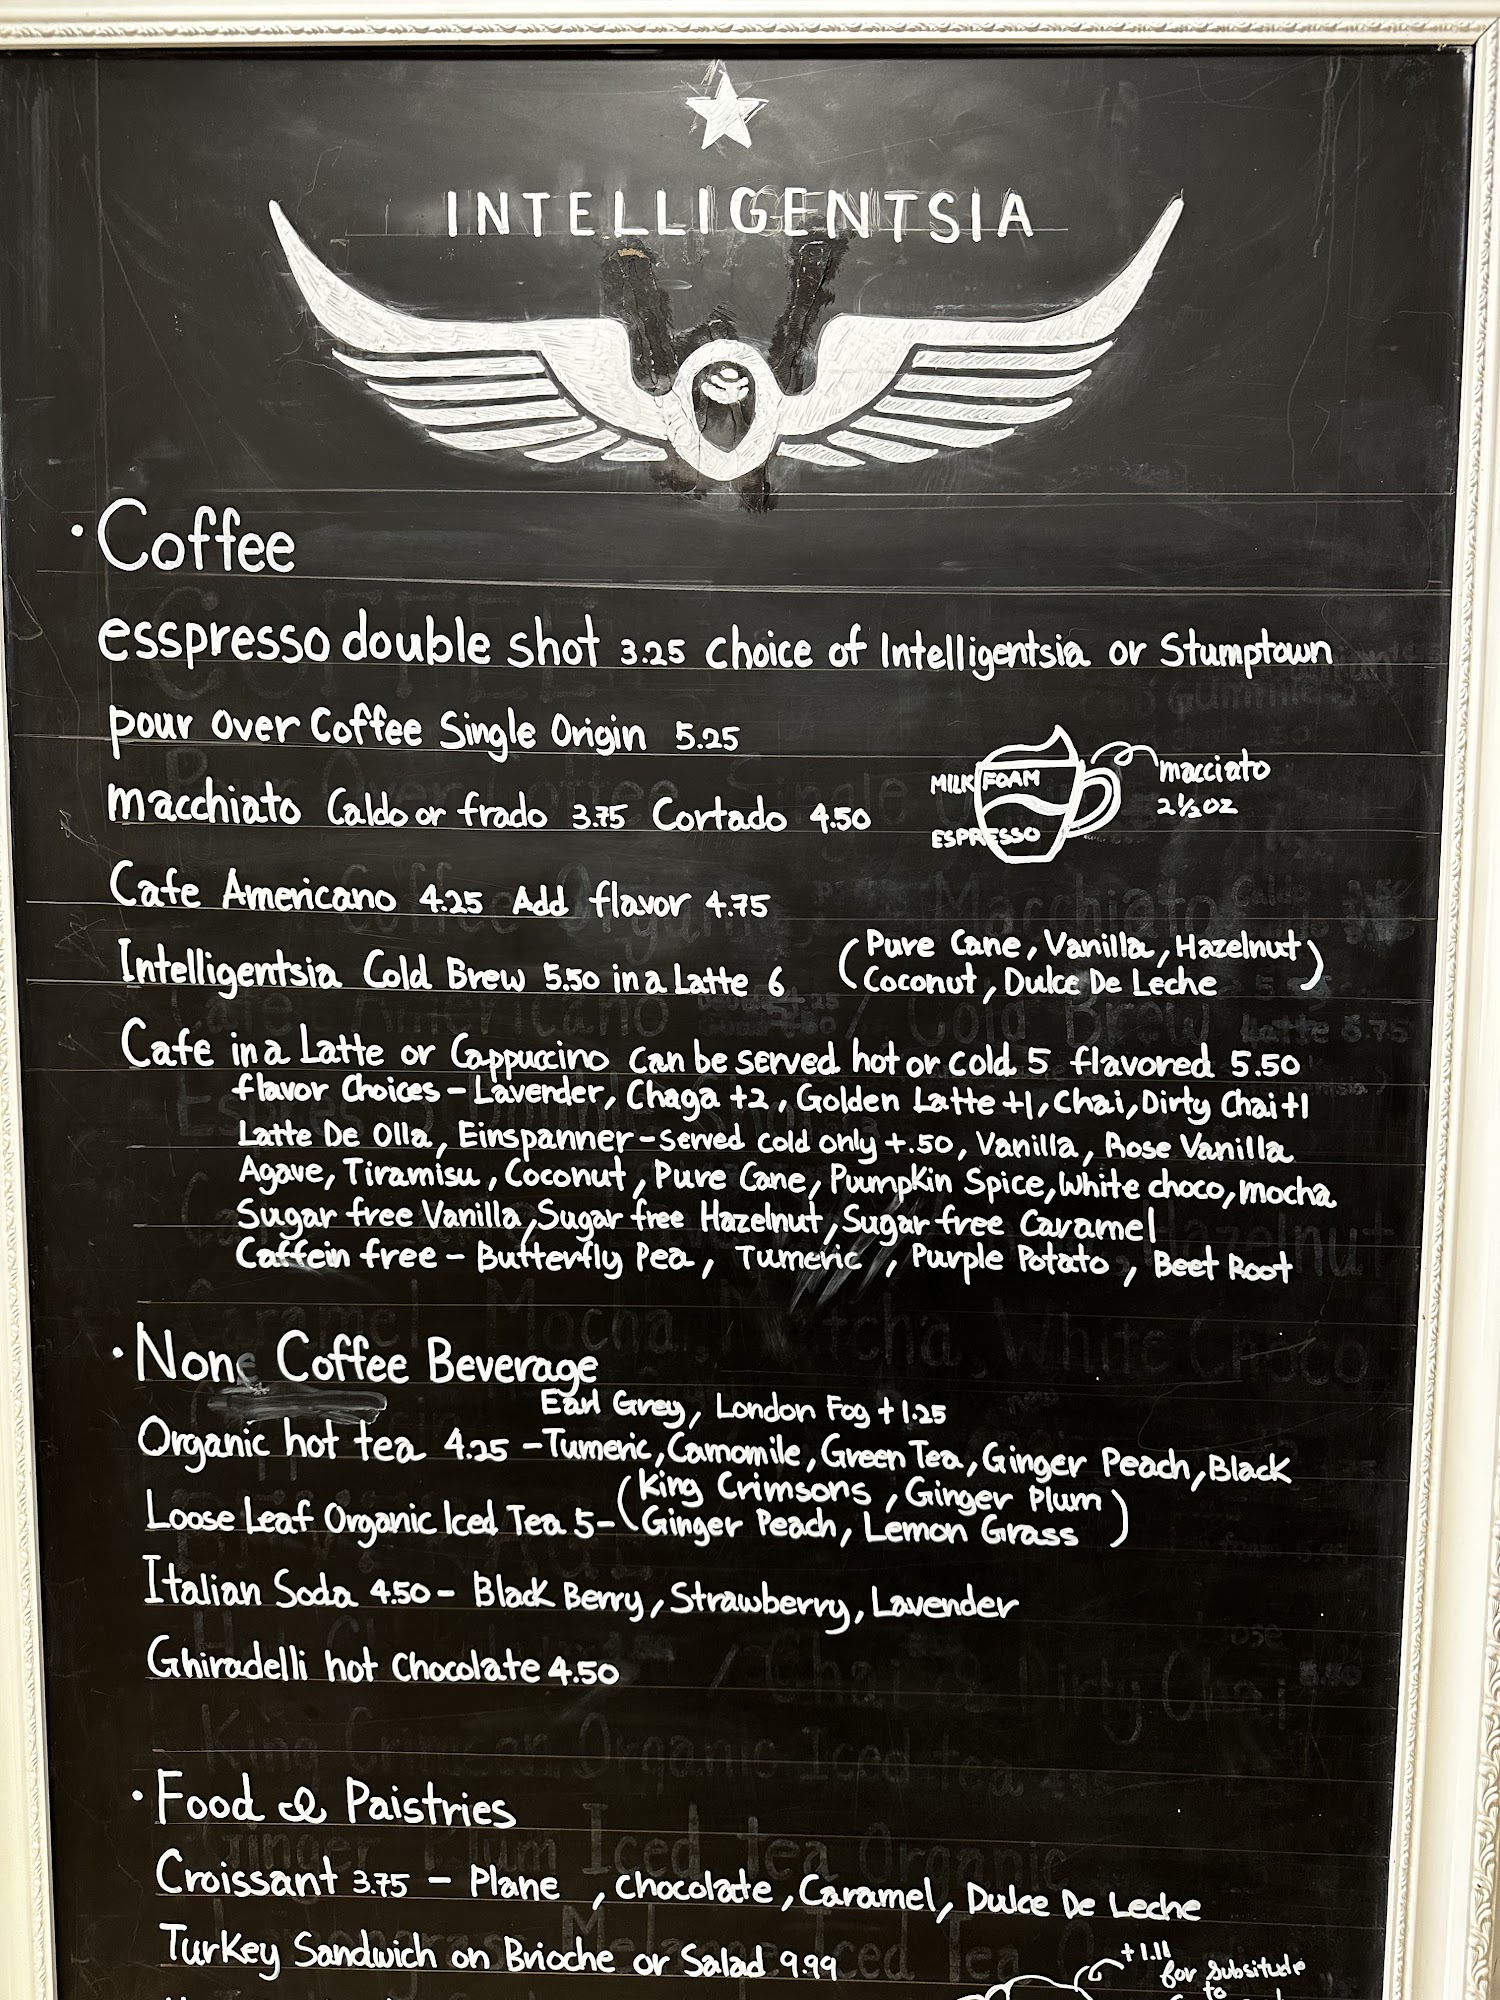 INTELLIGENTSIA
• Coffee
esspresso double shot 3.25 choice of Intelligentsia or Stumptown
pour over Coffee Single Origin 5.25
macchiato Caldo or frado 3.75 Cortado 4.50
MILK FOAM
ESPRESSO
macciato
2 1/2 oz
Cafe Americano 4.25 Add flavor 4.75
Intelligentsia Cold Brew 5.50 in a Latte 6
(Pure Cane, Vanilla, Hazelnut
Coconut, Dulce De Leche)
Cafe in a Latte or Cappuccino can be served hot or cold 5 flavored 5.50
flavor Choices - Lavender, Chaga +2, Golden Latte +1, Chai, Dirty Chai +1
Latte De Olla, Einspanner - served cold only +.50, Vanilla, Rose Vanilla
Agave, Tiramisu, Coconut, Pure Cane, Puumpkin Spice, White choco, mocha
Sugar free Vanilla, Sugar free Hazelnut, Sugar free Caramel
Caffein free - Butterfly Pea, Tumeric, Purple Potato, Beet Root
• None Coffee Beverage
Earl Grey, London Fog +1.25
Organic hot tea 4.25 - Tumeric, Camomile, Green Tea, Ginger Peach, Black
Loose Leaf Organic Iced Tea 5 - (King Crimsons, Ginger Plum
Ginger Peach, Lemon Grass)
Italian Soda 4.50 - Black Berry, Strawberry, Lavender
Ghiradelli hot Chocolate 4.50
• Food & Paistries
Croissant 3.75 - Plane , Chocolate, Caramel, Dulce De Leche
Turkey Sandwich on Brioche or Salad 9.99
+1.11
for Subsitude
to